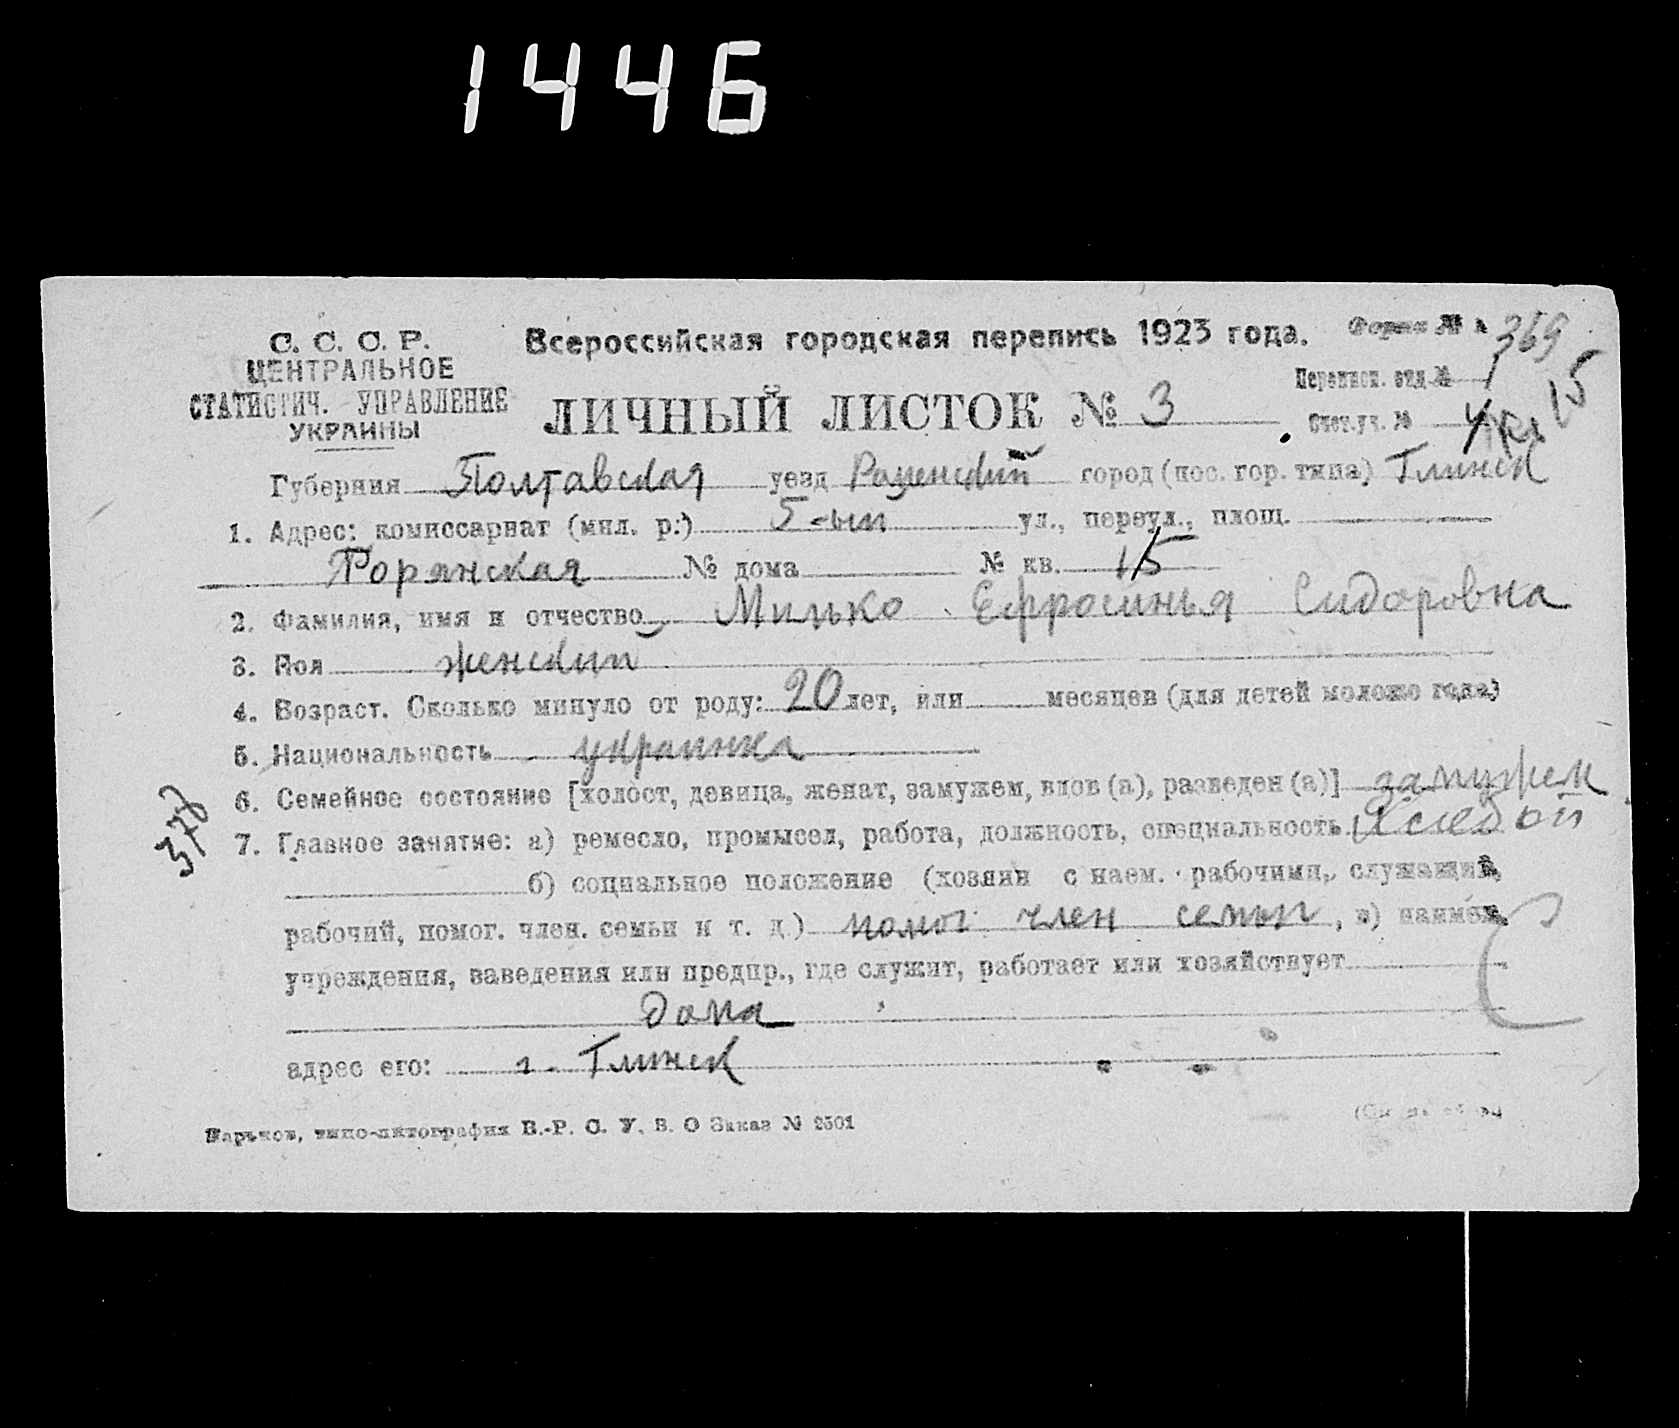 1446
С. С. С. Р.
ЦЕНТРАЛЬНОЕ
СТАТИСТИЧ. УПРАВЛЕНИЕ
УКРАИНЫ
Всероссийская городская перепись 1923 года.
Форма № 369
Переписн. отд. № 1
ЛИЧНЫЙ ЛИСТОК № 3
Счет. уч. № 4 15
Губерния Полтавская уезд Роменский город (пос. гор. типа) Глинск
1. Адрес: комиссариат (мил. р.) 5-ый ул., переул., площ.
№ дома № кв. 15
2. Фамилия, имя и отчество Милько Ефросинья Сидоровна
3. Пол женский
4. Возраст. Сколько минуло от роду: 20 лет, или месяцев (для детей моложе года)
5. Национальность украинка
6. Семейное состояние [холост, девица, женат, замужем, вдов (а), разведен (а)] замужем
378
7. Главное занятие: а) ремесло, промысел, работа, должность, специальность
б) социальное положение (хозяин с наем. рабочими, служащий,
рабочий, помог. член. семьи и т. д.) помог. член семьи, в) наимен.
учреждения, заведения или предпр., где служит, работает или хозяйствует
дома
адрес его: г. Глинск
Харьков, типо-литография В.-Р. С. У. В. О Заказ № 2501